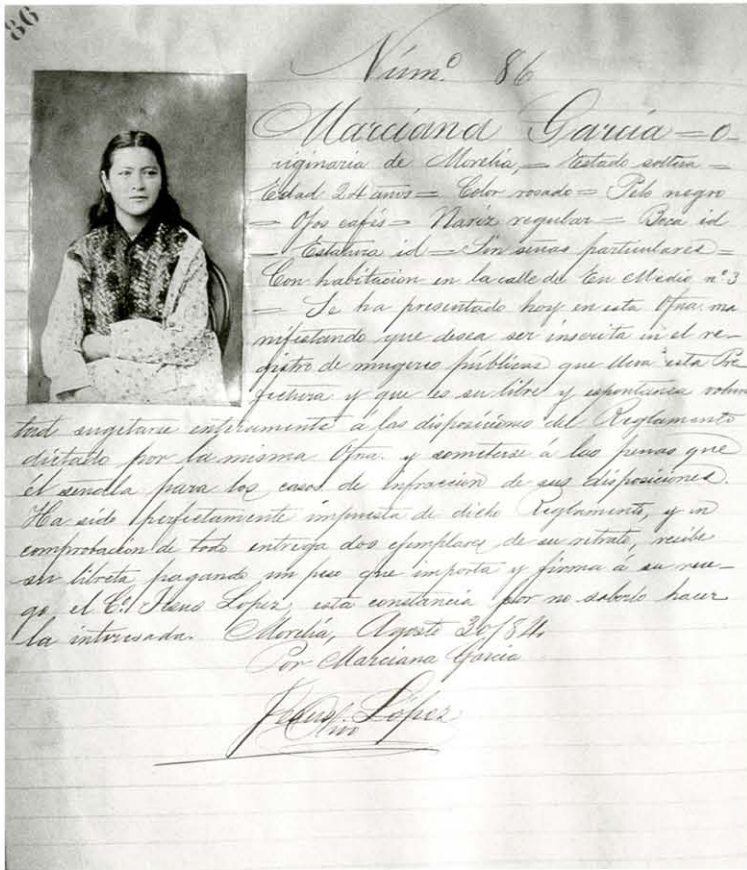 86
Núm.º 86
Marciana García = O-
riginaria de Morelia, = Estado soltera =
Edad 24 años = Color rosado = Pelo negro
= Ojos cafés = Naríz regular = Boca id
= Estatura id = Sin señas particulares =
Con habitacion en la calle de En Medio nº 3
= Se ha presentado hoy en esta Ofna. ma
nifestando que desea ser inscrita en el re-
gistro de mugeres públicas que lleva esta Pre
fectura y que es su libre y espontanea volun
tad sugetarse enteramente á las disposiciones del Reglamento
dictado por la misma Ofna. y someterse á las penas que
él señala para los casos de infraccion de sus disposiciones.
Ha sido perfectamente impuesta de dicho Reglamento, y en
comprobacion de todo entrega dos ejemplares de su retrato, recibe
su libreta pagando un peso que importa y firma á su rue-
go el Cº. Jesus Lopez, esta constancia por no saberlo hacer
la interesada. Morelia, Agosto 30/84.
Por Marciana Garcia
Jesus López